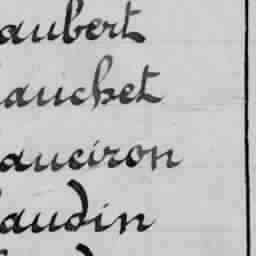 aubert
auchet
auciron
audin